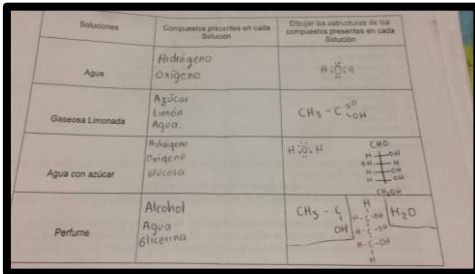 Soluciones
Compuestos presentes en cada
Solución
Dibujar las estructuras de los
compuestos presentes en cada
Solución
Agua
Hidrógeno
Oxígeno
H:Ö:H
Gaseosa Limonada
Azúcar
Limón
Agua.
CH3 - C
O
OH
Agua con azúcar
Hidrógeno
Oxígeno
Glucosa
H:Ö:H
CHO
H OH
H
H OH
H OH
CH2OH
Perfume
Alcohol
Agua
Glicerina
CH3 - C
OH
H
H - C - OH
H - C - OH
H - C - OH
H
H2O